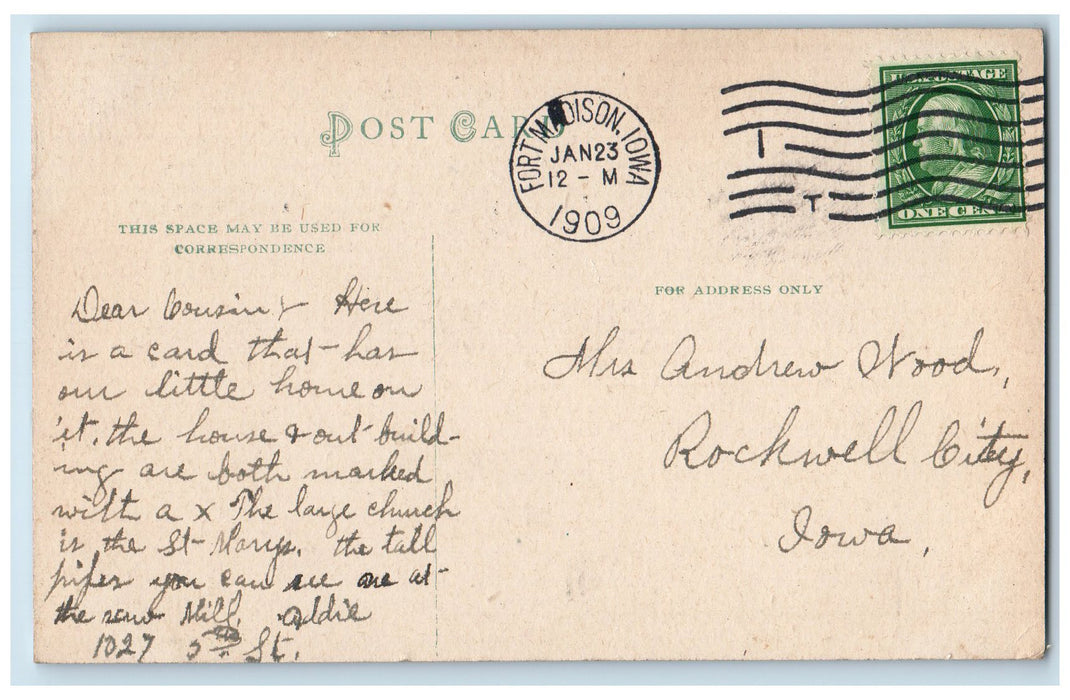 POST CARD
FORT MADISON, IOWA
JAN 23
12 - M
1909
I
T
U.S. POSTAGE
ONE CENT
THIS SPACE MAY BE USED FOR
CORRESPONDENCE
FOR ADDRESS ONLY
Dear Cousin :- Here
is a card that has
our little home on
it. the house & out build-
ing are both marked
with a x The large church
is the St Marys. the tall
pipes you can see are at
the saw Mill. Addie
1027 5th St.
Mrs Andrew Wood,
Rockwell City,
Iowa,